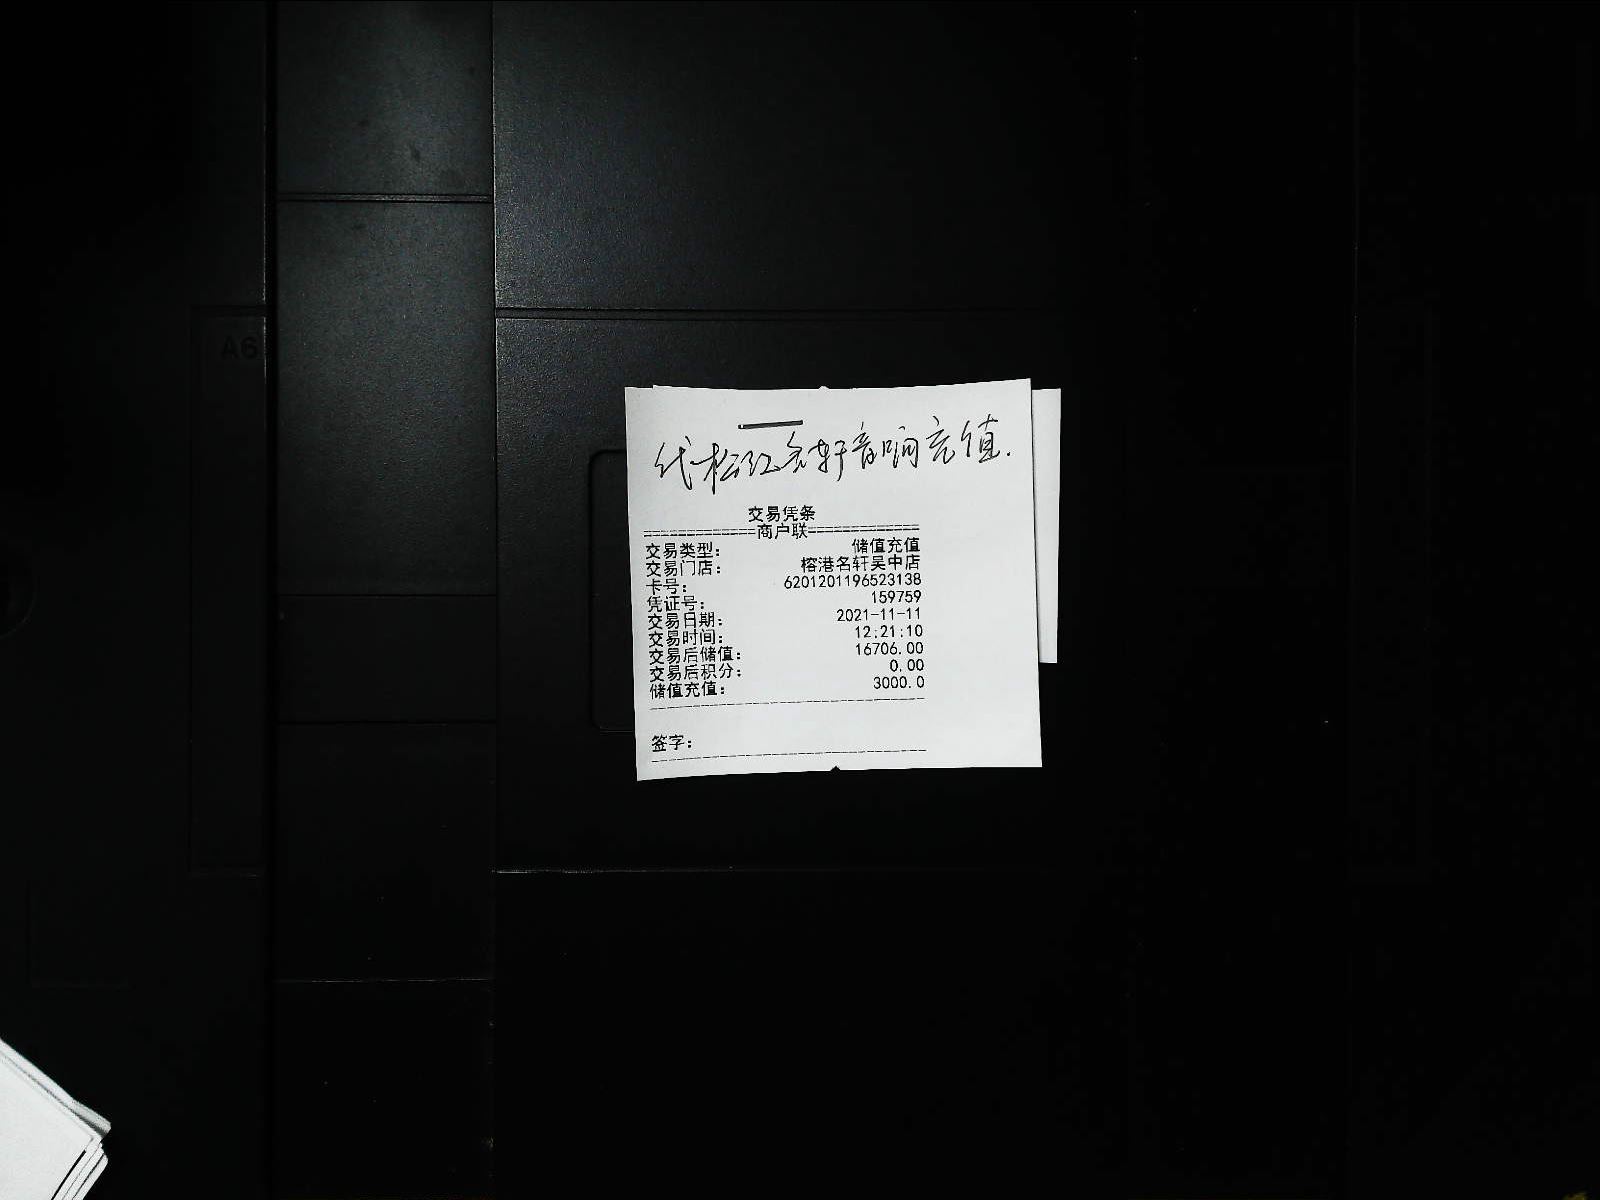 A6
代松江名轩音响充值.
交易凭条
=============商户联=============
交易类型: 储值充值
交易门店: 榕港名轩吴中店
卡号: 6201201196523138
凭证号: 159759
交易日期: 2021-11-11
交易时间: 12:21:10
交易后储值: 16706.00
交易后积分: 0.00
储值充值: 3000.0
签字: